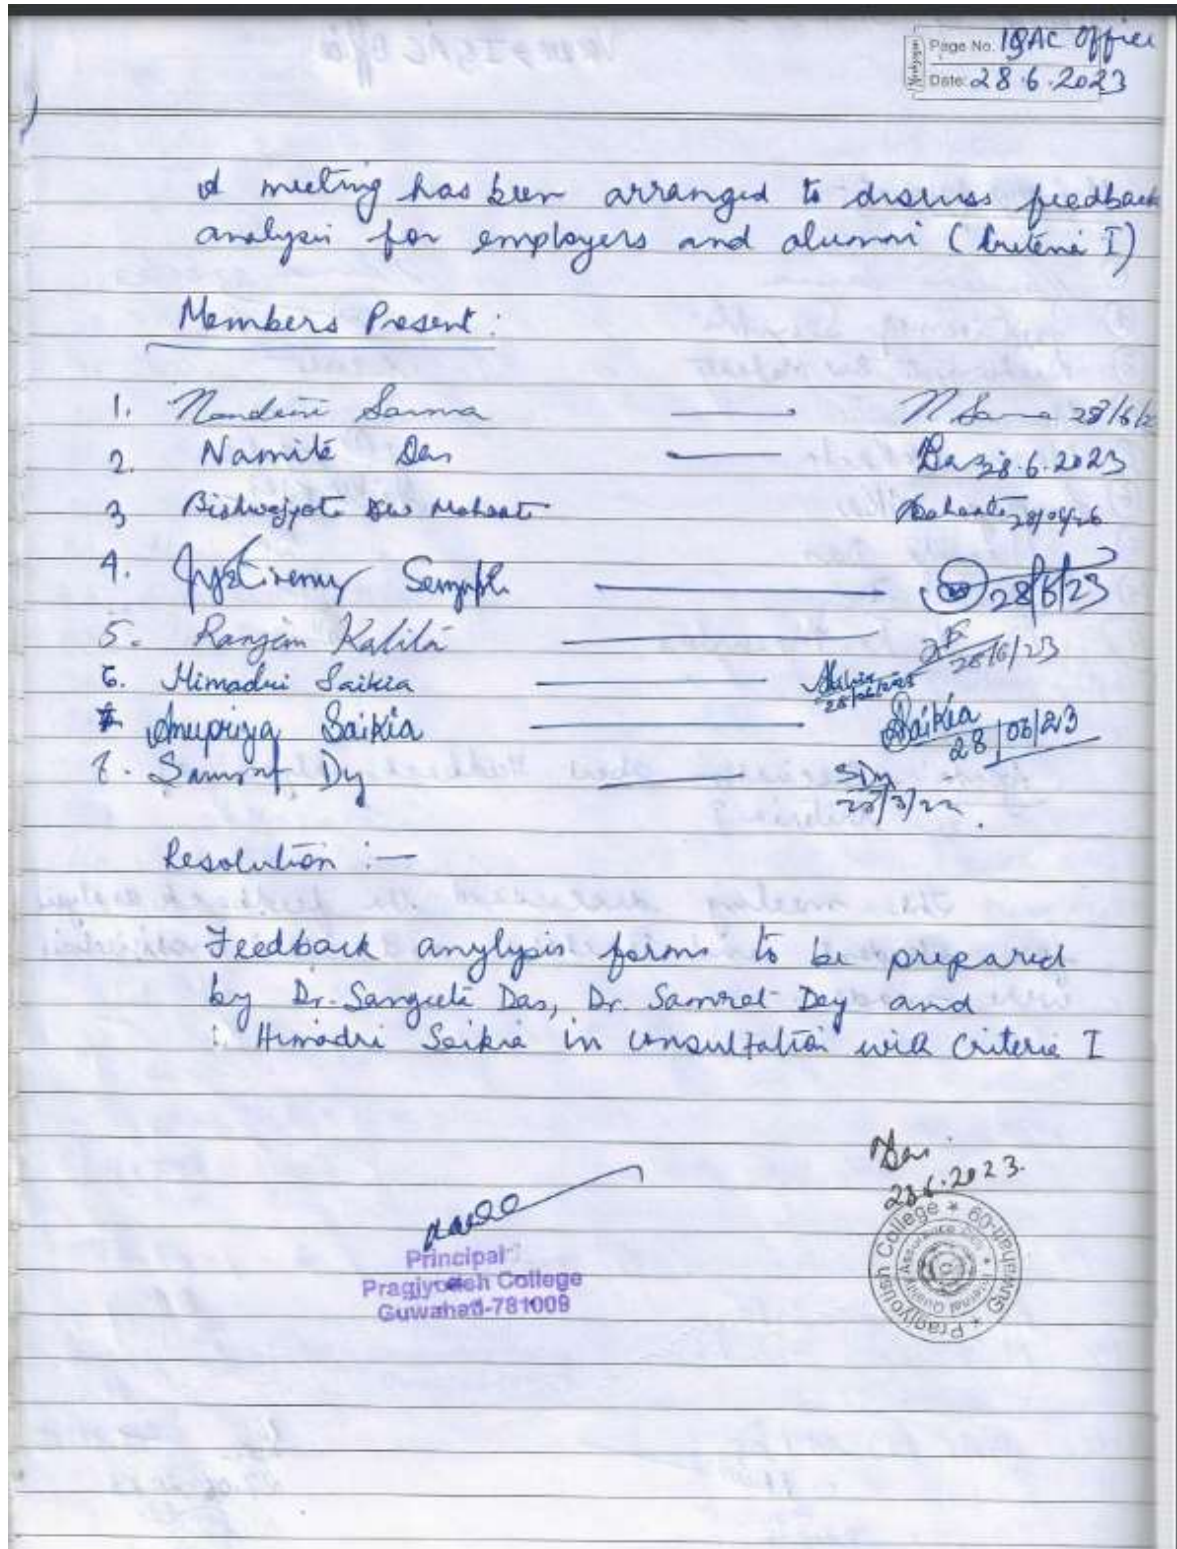 Page No. IQAC Office
Date: 28.6.2023
A meeting has been arranged to discuss feedback
analysis for employers and alumni (Criteria I)
Members Present:
1. Nandini Sarma — N Sarma 28/6/2
2. Namita Das — Das 28.6.2023
3 Bishwajyoti Dev Mahanta Mahanta
4. Jyotirmoy — 28/6/23
5. Ranjan Kalita — 28/6/23
6. Himadri Saikia — Saikia 28/06/2023
Anupriya Saikia — Saikia 28/06/23
Samrat Dey — SDey
Resolution :—
Feedback anylysis forms to be prepared
by Dr. Sangeeta Das, Dr. Samrat Dey and
Himadri Saikia in consultation with Criteria I
Das
28.6.2023.
Principal
Pragjyotish College
Guwahati-781009
Pragjyotish College * Guwahati-09 *
Internal Quality Assurance Cell